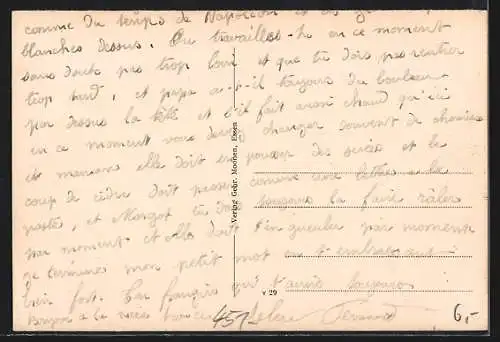 comme du temps de Napoléon et des
blanches dessus. Où travailles-tu en ce moment
sans doute pas trop loin et que tu dois pas rentrer
trop tard, et papa a-t-il toujours du bouleau
par dessus la tête et s'il fait aussi chaud qu'ici
en ce moment vous devez changer souvent de chemises
et maman elle doit en pousser des suées et le
coup de cidre doit passer comme une lettre à la
poste, et Margot tu dois toujours la faire râler
par moment et elle doit t'en gueuler par moments
je termines mon petit mot en t'embrassant
bien fort. Ton frangin qui t'aime toujours
Bonjour à la
Fernand
Verlag Gebr. Moonen, Essen
V 29
457
6,-